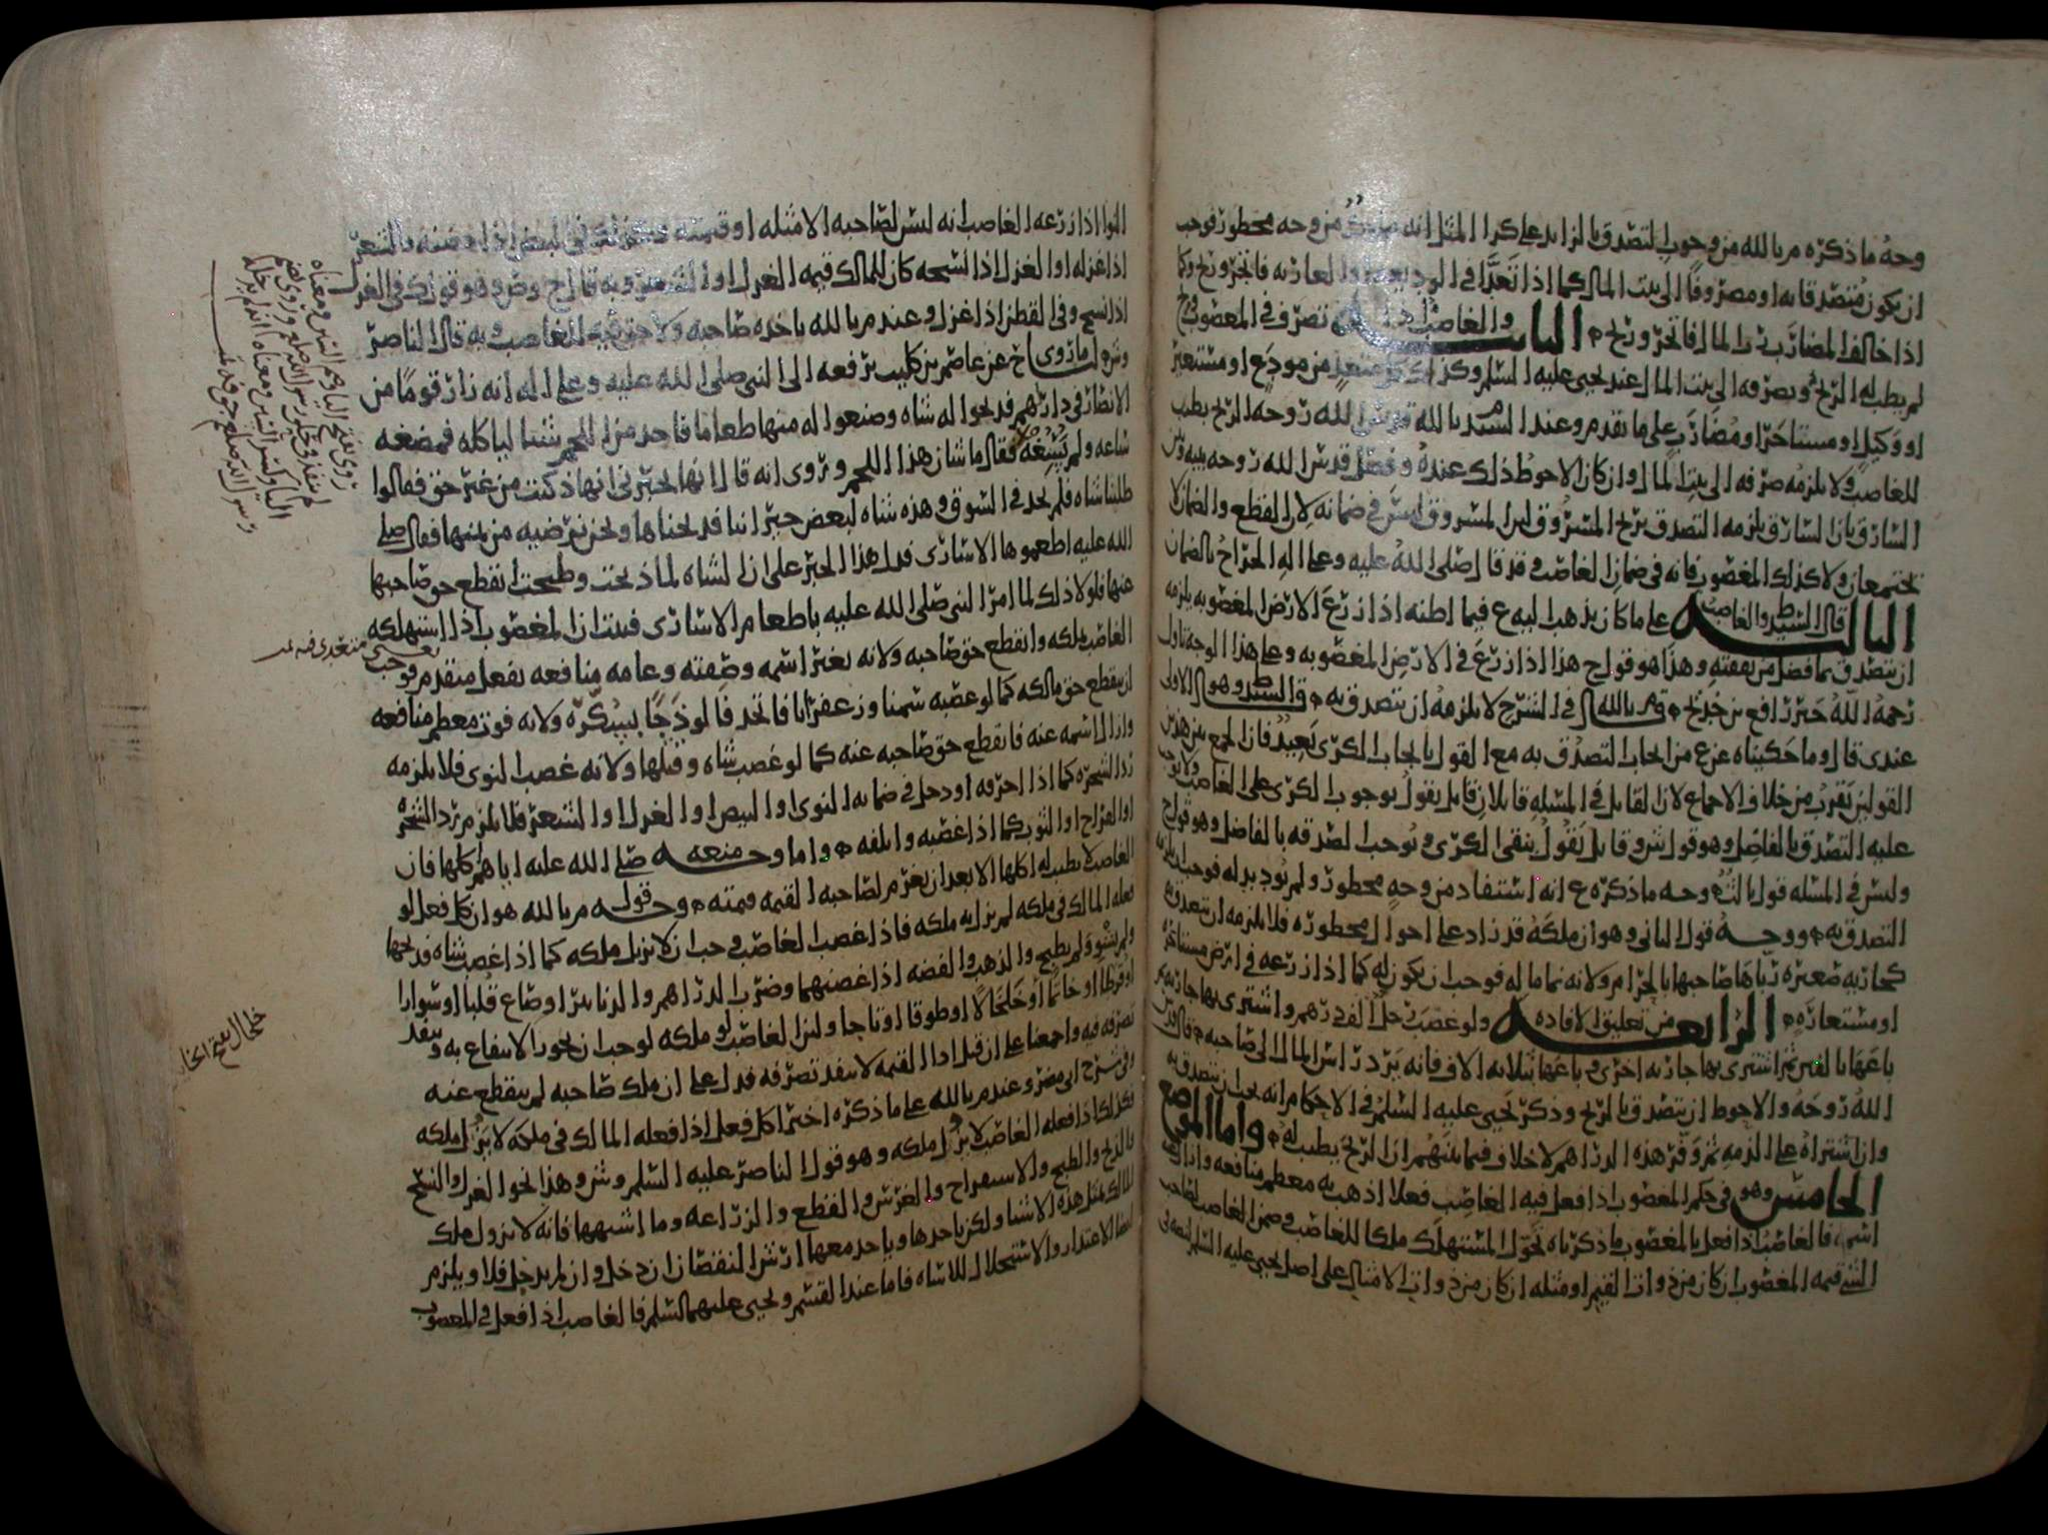 وجه ما ذكره م بالله من وجوب التصدق بالزائد على كرا المثل انه من وجه محظور فوجب
ان يكون متصدقا به او مصروفا الى بيت المال كما اذا تعدا في الوديعة والعارية فاتجر وربح وكما
اذا خالف المضارب في المال فاتجر وربح الثاني والغاصب تصرف في المغصوب وربح
لم يطب له الربح ويصرفه الى بيت المال عند يحيى عليه السلم وكذلك كل متعد من مودع او مستعير
او وكيل او مستاجر او مضارب على ما تقدم وعند السيد م بالله قدس الله روحه الربح يطيب
للغاصب ولا يلزمه صرفه الى بيت المال وان كان الاحوط ذلك عنده وفصل قدس الله روحه بينه وبين
السارق بان السارق يلزمه التصدق بربح المسروق لان المسروق ليس في ضمانه لان القطع والضمان لا
يجتمعان ولا كذلك المغصوب فانه في ضمان الغاصب وقد قال صلى الله عليه وعلى اله الخراج بالضمان
الثالث قال السيد ط والغاصب على ما كان يذهب اليه ع فيما اظنه اذا زرع الارض المغصوبه يلزمه
ان يتصدق بما فضل من نفقته وهذا هو قول ح هذا اذا زرع في الارض المغصوبه وعلى هذا الوجه تاول
رحمه الله خبر رافع بن خديج وقال م بالله في الشرح لا يلزمه ان يتصدق به قال السيد ط وهو الاولى
عندي قال وما حكيناه عن ع من ايجاب التصدق به مع القول بايجاب الكرى بعيد فان الجمع بين هذين
القولين يقرب من خلاف الاجماع لان القائل في المسله قائلان قائل يقول بوجوب الكرى على الغاصب ولا يوجب
عليه التصدق بالفاضل وهو قول ش وقائل يقول ينفى الكرى ويوجب التصدقه بالفاضل وهو قول ح
وليس في المسله قول ثالث وجه ما ذكره ع انه استفاد من وجه محظور ولم يؤد بدله فوجب ان يلزمه
التصدق به ووجه قول الثاني وهو ان ملكه قد زاد على احوال محظوره فلا يلزمه ان يتصدق به
كجاريه صغيره رباها صاحبها بالحرام ولانه نما ماله فوجب ان يكون له كما اذا زرعه في ارض مستاجره
او مستعاره الرابع من تعليق الافاده ولو غصب رجل الف درهم واشترى بها جاريه ثم
باعها بالفين ثم اشترى بها جاريه اخرى وباعها بثلاثه الاف فانه يرد راس المال الى صاحبه قال قدس
الله روحه والاحوط ان يتصدق بالربح وذكر يحيى عليه السلم في الاحكام انه يجب ان يتصدق به
وان اشتراه على الذمه ثم وفر هذه الدراهم لا خلاف فيما بينهم ان الربح يطيب له واما الموضع
الخامس وهو في حكم المغصوب اذا فعل فيه الغاصب فعلا اذهب به معظم منافعه وازال
اسمه فالغاصب اذا فعل بالمغصوب ما ذكرناه تحول المستهلك ملكا للغاصب وضمن الغاصب لصاحب
الشي قيمه المغصوب ان كان من ذوات القيم او مثله ان كان من ذوات الامثال على اصل يحيى عليه السلم
النوا اذا زرعه الغاصب انه ليس لصاحبه الا مثله او قيمته وكذلك في البيض اذا حضنه والشعر
اذا غزله او الغزل اذا نسجه كان للمالك قيمه الغزل او الشعر وبه قال ح وص وهو قول ك في الغزل
اذا نسج وفي القطن اذا غزل وعند م بالله ياخذه صاحبه ولا حق فيه للغاصب وبه قال الناصر
وش لما روى ح عن عاصم بن كليب يرفعه الى النبي صلى الله عليه وعلى اله انه زار قوما من
الانصار في دارهم فذبحوا له شاه وصنعوا له منها طعاما فاخذ من اللحم شيئا لياكله فمضغه
ساعه ولم يسغه فقال ما شان هذا اللحم وروى انه قال انها لتخبرني انها ذكيت من غير حق فقالوا
طلبنا شاه فلم نجد في السوق وهذه شاه لبعض جيراننا فذبحناها ونحن نرضيه من ثمنها فقال صلى
الله عليه اطعموها الاسارى فدل هذا الخبر على ان الشاه لما ذبحت وطبخت انقطع حق صاحبها
عنها فلولا ذلك لما امر النبي صلى الله عليه باطعام الاسارى فثبت ان المغصوب اذا استهلكه
الغاصب ملكه وانقطع حق صاحبه ولانه بغير اسمه وصفته وعامه منافعه بفعل متقدم فوجب
ان ينقطع حق مالكه كما لو غصبه سمنا وزعفرانا فاتخذ فالوذجا بسكره ولانه فوت معظم منافعه
وازال اسمه عنه فانقطع حق صاحبه عنه كما لو غصب شاه وقتلها ولانه غصب النوى فلا يلزمه
رد الشجره كما اذا احرقه او دخل في ضمانه النوى او البيض او الغزل او الشعر فلا يلزم رد الشجر
او الفراخ او الثوب كما اذا غصبه واتلفه واما وجه منعه صلى الله عليه اياهم كلها فان
الغاصب لا يطيب له اكلها الا بعد ان يغرم لصاحبه القيمه قيمته وجه قول م بالله هو ان كل فعل لو
فعله المالك في ملكه لم يزل به ملكه فاذا غصب الغاصب وجب ان لا يزيل ملكه كما اذا غصب شاه فذبحها
ولم يشو ولم يطبخ والذهب والفضه اذا غصبهما وضرب الدراهم والدنانير او صاغ قلبا او سوارا
او قرطا او خاتما او خلخالا او طوقا او تاجا ولئن الغاصب لو ملكه لوجب ان يجوز الانتفاع به وينفذ
تصرفه فيه واجمعنا على ان قبل اداء القيمه لا ينفذ تصرفه فدل على ان ملك صاحبه لم ينقطع عنه
وفي شرح ابي مضر وعند م بالله على ما ذكره اخيرا كل فعل اذا فعله المالك في ملكه لا يزل ملكه
فكذلك اذا فعله الغاصب لا يزل ملكه وهو قول الناصر عليه السلم وش وهذا نحو الغزل والنسج
والذبح والطبخ والاستفراخ والغرس والقطع والزراعه وما اشبهها فانه لا يزول ملك
المالك بمثل هذه الاشيا ولكن ياخذها وياخذ معها ارش النقصان ان دخل وان لم يدخل فلا ويلزم
ايضا الاعتذار والاستحلال للاساه فاما عند القسم ويحيى عليهما السلم فالغاصب اذا فعل في المغصوب